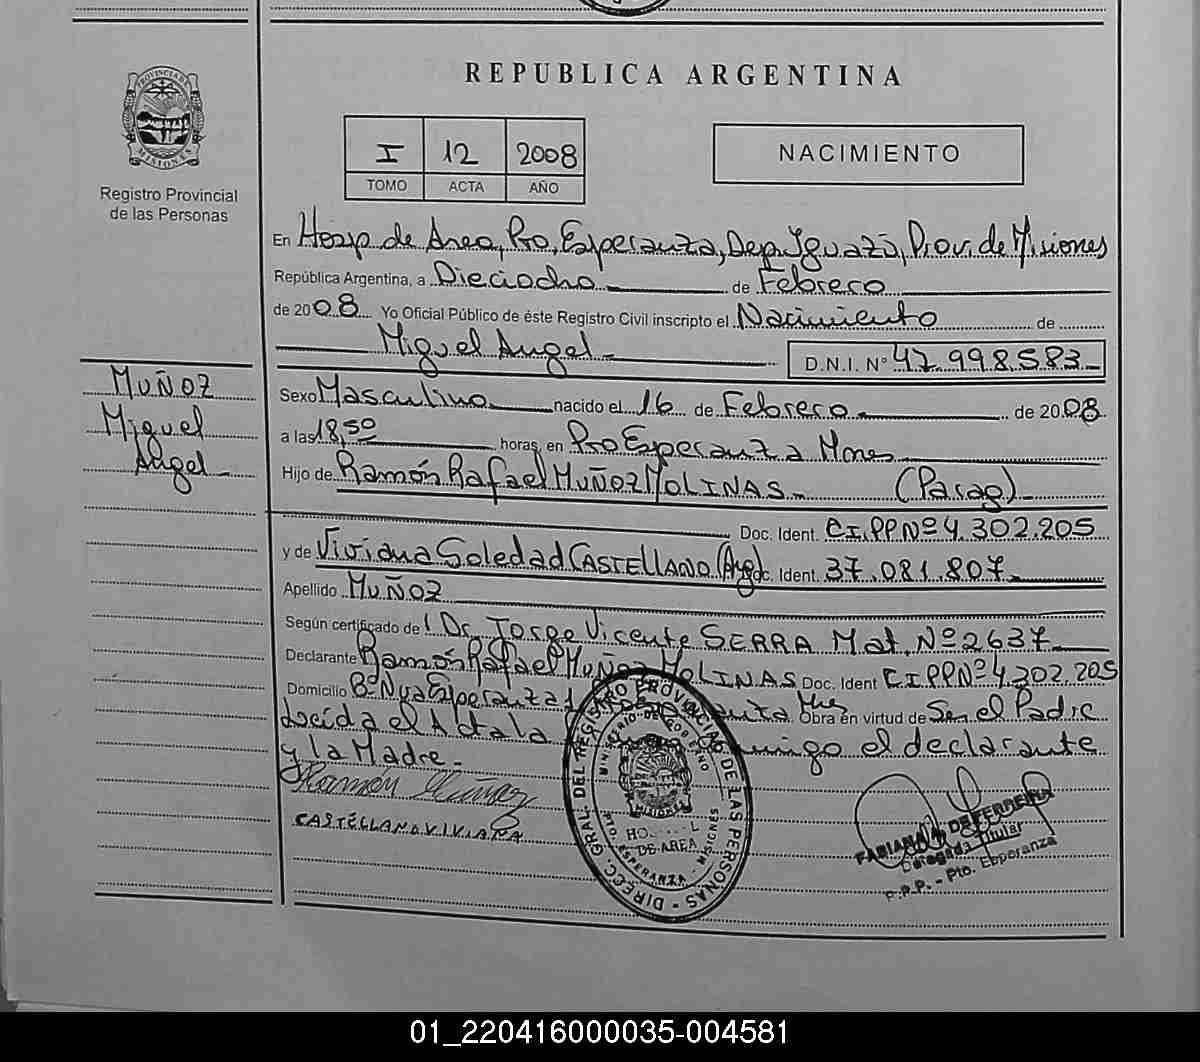 REPUBLICA ARGENTINA
PROVINCIA DE
MISIONES
Registro Provincial
de las Personas
I 12 2008
TOMO ACTA AÑO
NACIMIENTO
En Hosp. de Area, Pto, Esperanza, Dep. Iguazú, Prov. de Misiones
República Argentina, a Dieciocho de Febrero
de 2008 Yo Oficial Público de éste Registro Civil inscripto el Nacimiento de
Miguel Angel D.N.I. Nº 47.998.583
MUÑOZ
Miguel
Angel
Sexo Masculino nacido el 16 de Febrero de 2008
a las 18,50 horas, en Pto Esperanza Mnes
Hijo de Ramón Rafael MUÑOZ MOLINAS (Parag)
Doc. Ident. C.I.PP Nº 4.302.205
y de Viviana Soledad CASTELLANO (Arg) Doc. Ident. 37.081.807
Apellido MUÑOZ
Según certificado de Dr, Jorge Vicente SERRA Mat. Nº 2637
Declarante Ramón Rafael MUÑOZ MOLINAS Doc. Ident C.I.PP Nº 4.302.205
Domicilio Bº Nva Esperanza Obra en virtud de Ser el Padre
Leída el Acta la conmigo el declarante
y la Madre.
Ramón Muñoz
CASTELLANO VIVIANA
DIRECC. GRAL. DEL REGISTRO PROVINCIAL DE LAS PERSONAS
MINISTERIO DE GOBIERNO
MISIONES
DE AREA
PTO. ESPERANZA - MISIONES
FABIANA A. DE FERREIRA
Delegada Titular
R.P.P. - Pto. Esperanza
01_220416000035-004581